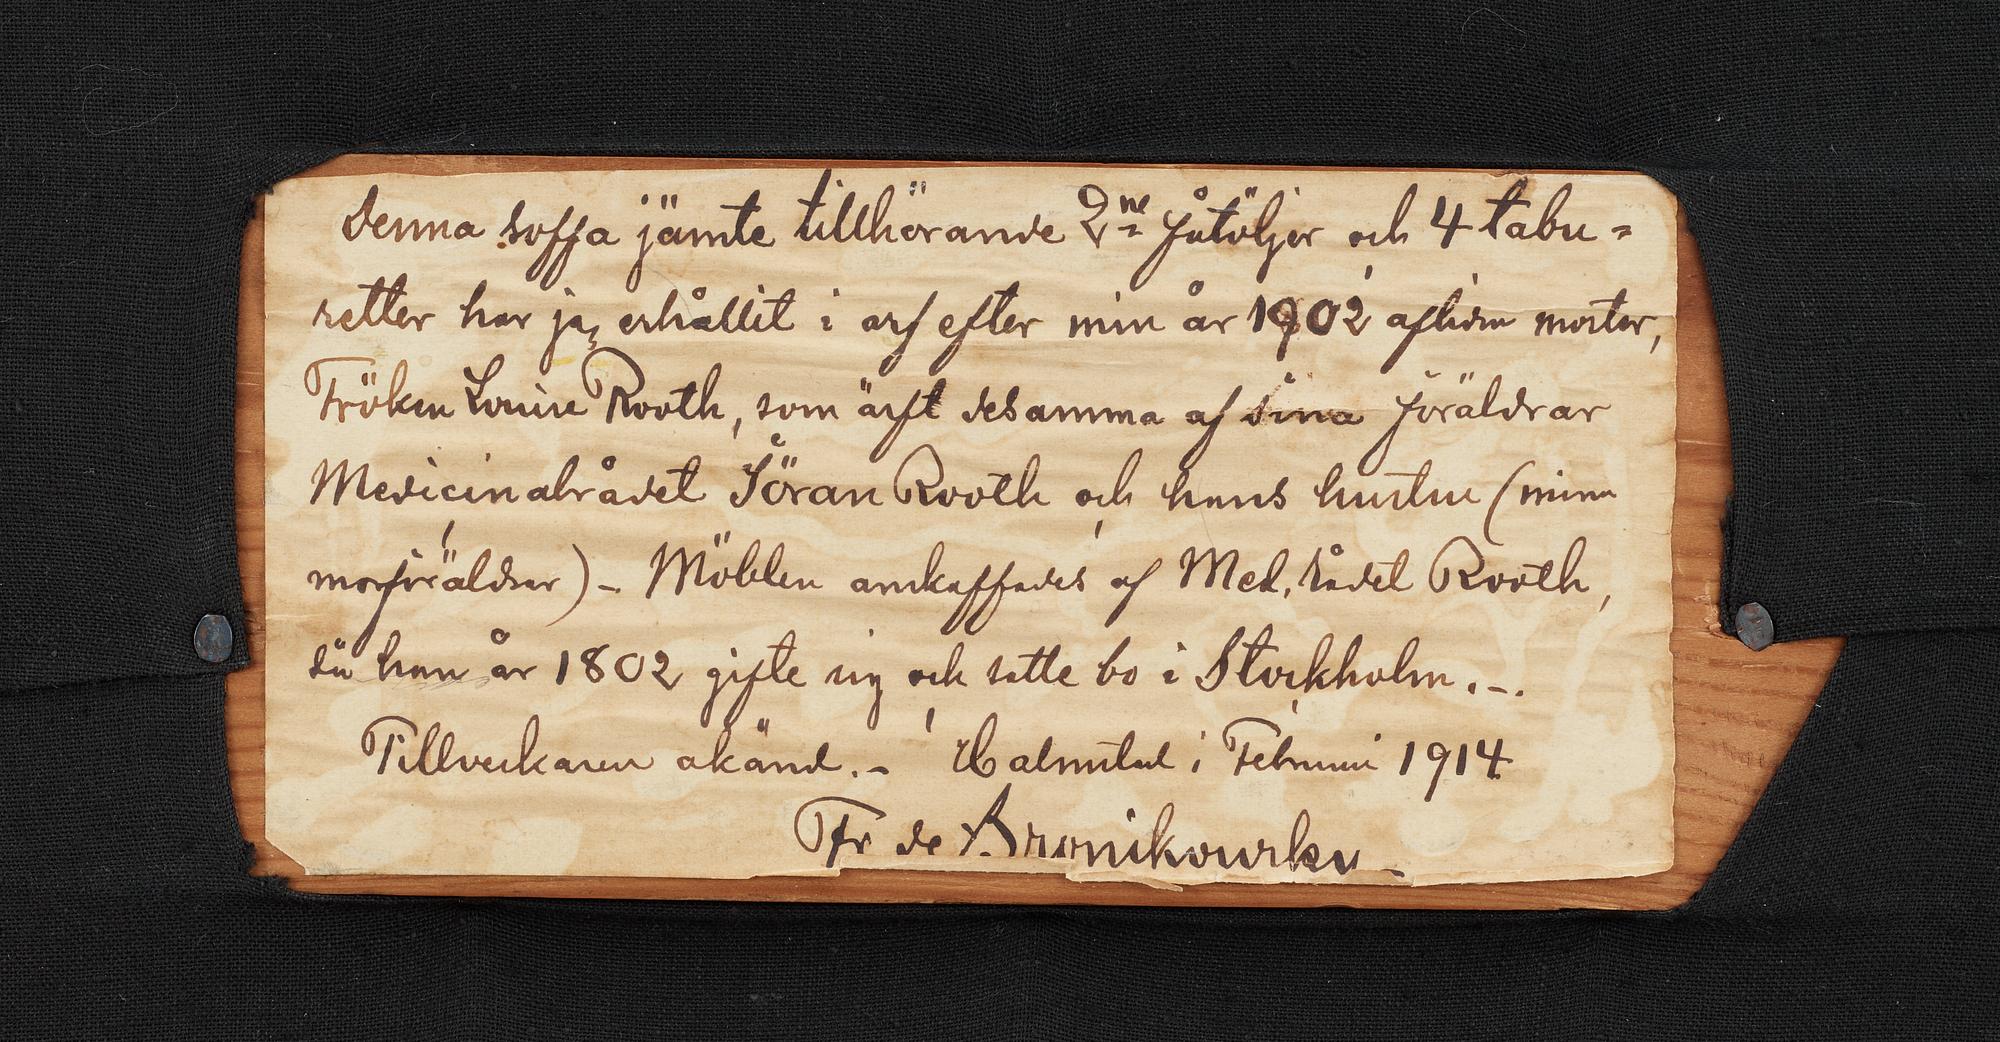 Denna soffa jämte tillhörande 2ne fåtöljer och 4 tabu=
retter har jag erhållit i arf efter min år 1902 aflidna moster,
Fröken Louise Rooth, som ärft desamma af sina föräldrar
Medicinalrådet Jöran Rooth och hans hustru (mina
morföräldrar) – Möblen anskaffades af Med. rådet Rooth,
då han år 1802 gifte sig och satte bo i Stockholm.–.
Tillverkaren okänd.– Halmstad i Februari 1914
Fr de Bronikowsky –